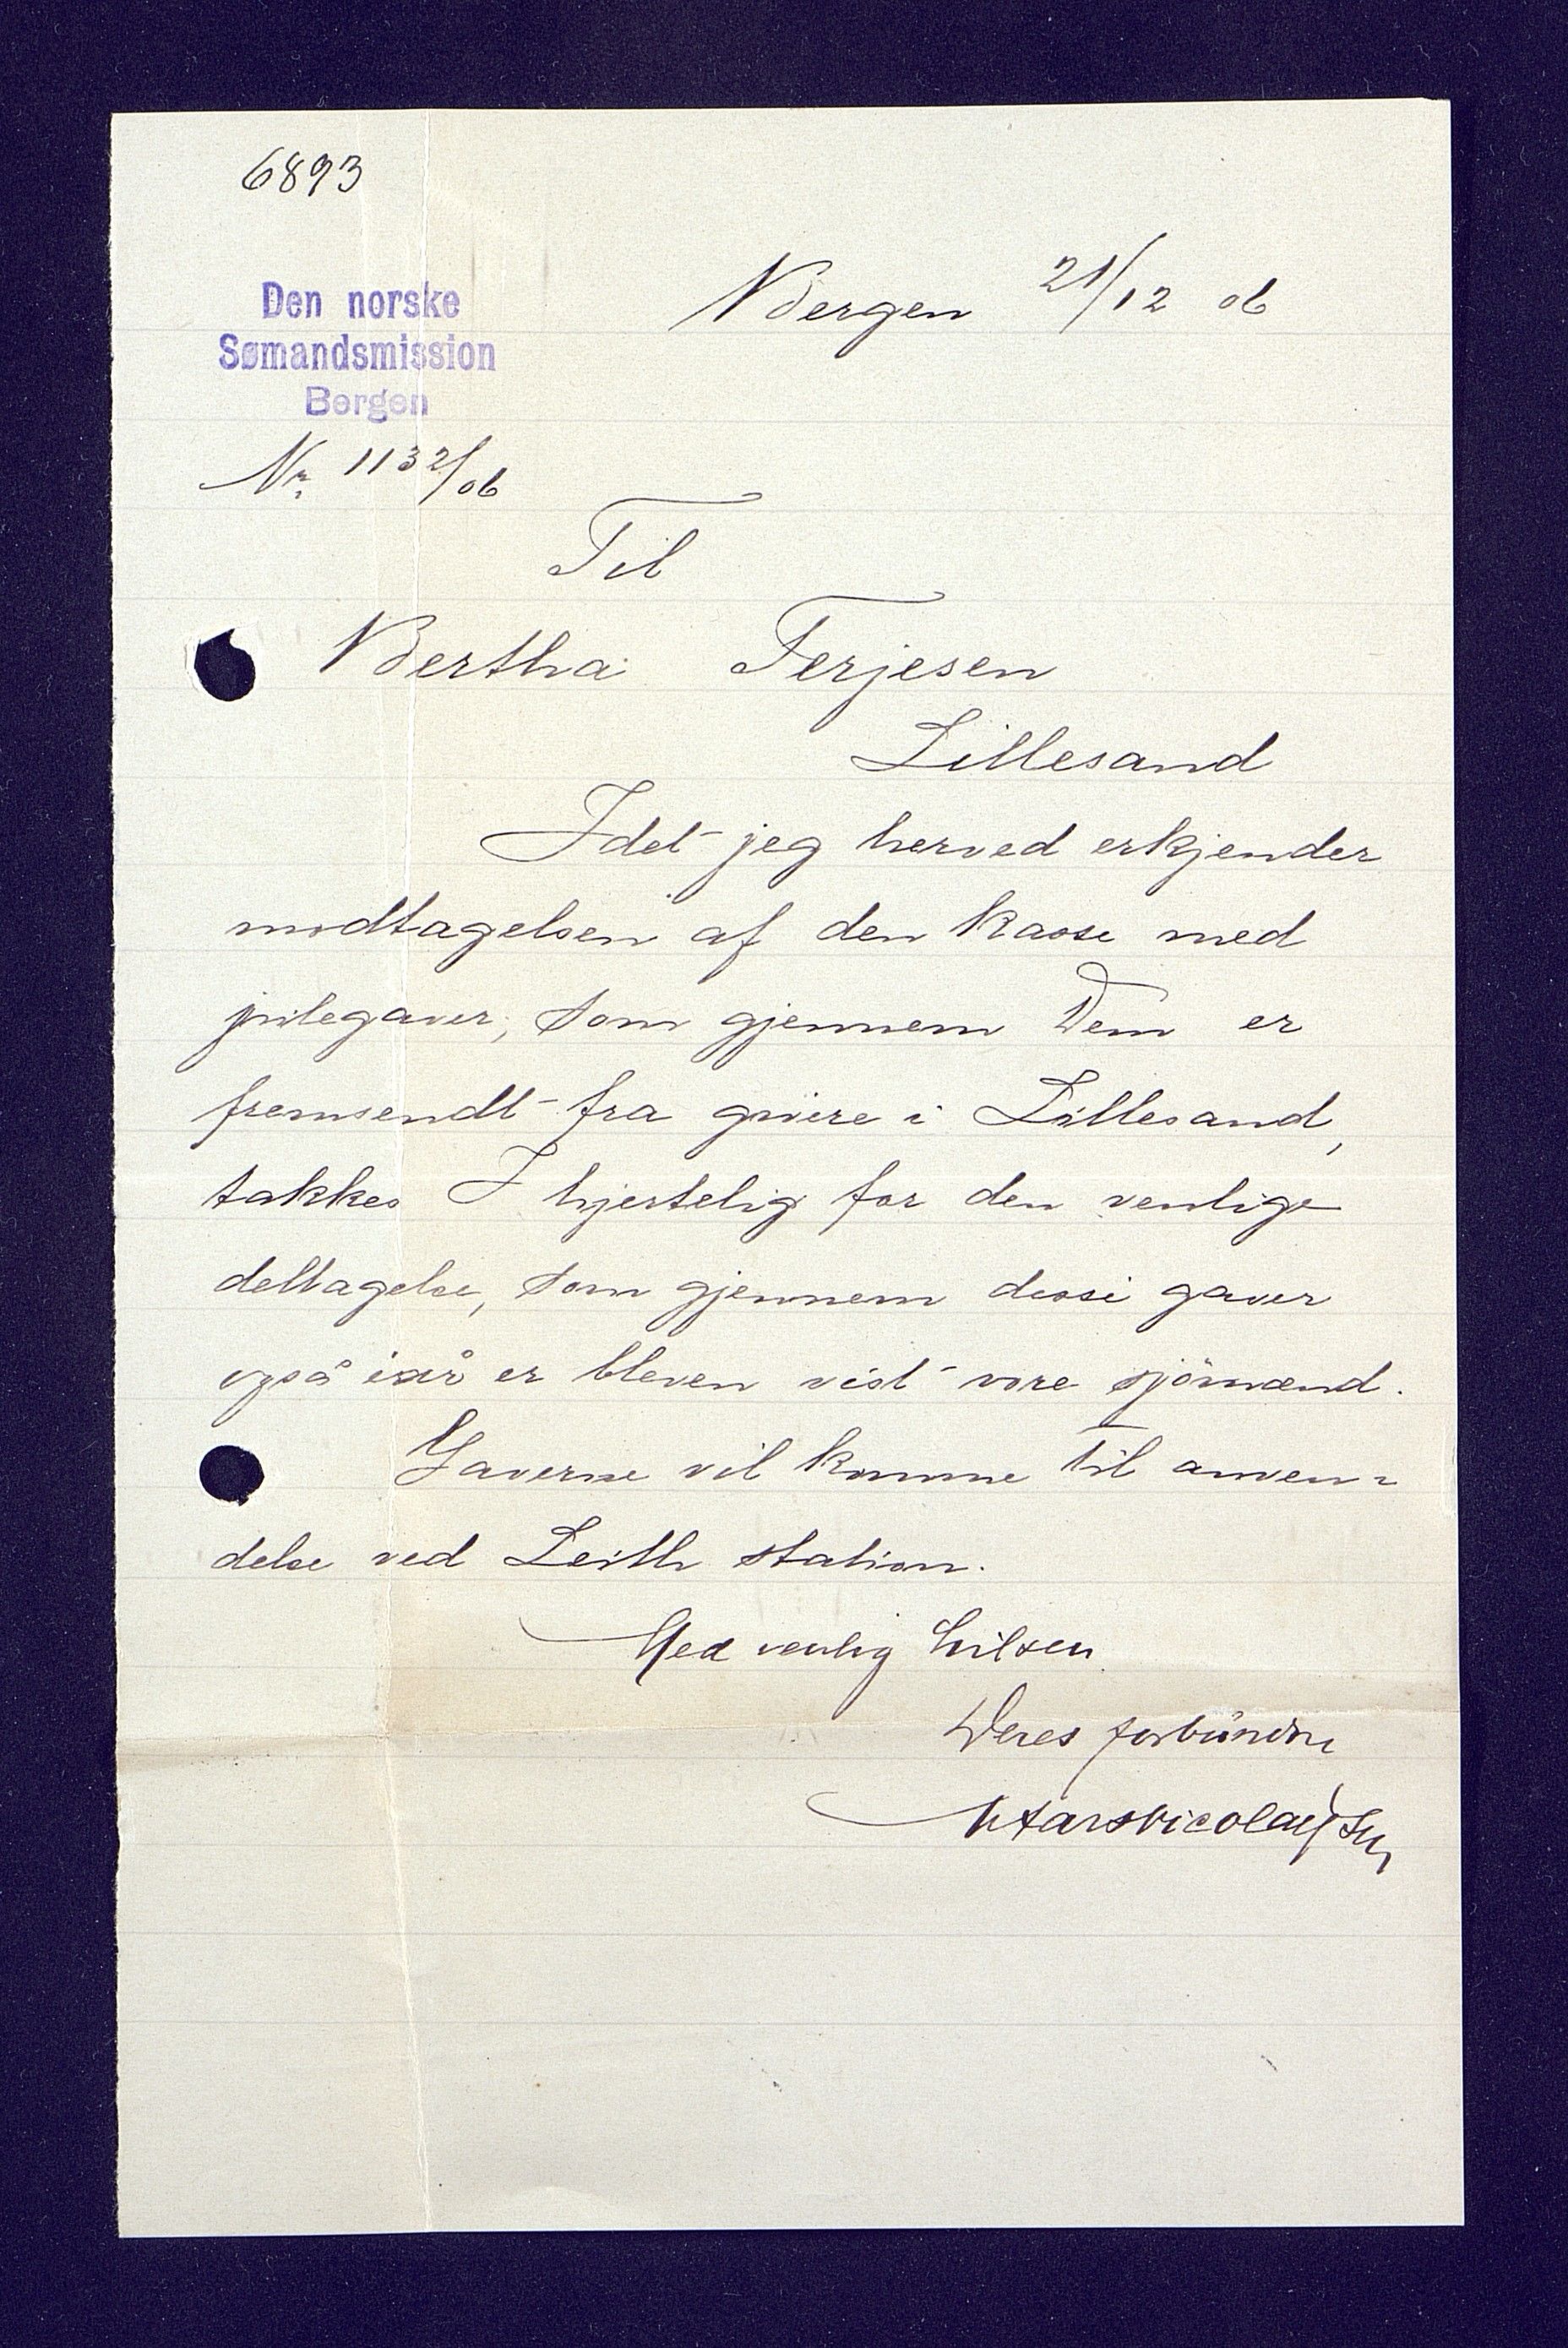 6893
Bergen 21/12 06
Den norske
Sømandsmission
Bergen
Nr. 1132/06
Til
Bertha Terjesen
Lillesand
Idet jeg herved erkjender
modtagelsen af den kasse med
julegaver, som gjennem Dem er
fremsendt fra givere i Lillesand,
takkes I hjertelig for den venlige
deltagelse, som gjennem disse gaver
også iår er bleven vist vore sjömænd.
Gaverne vil komme til anven-
delse ved Leith station.
Med venlig hilsen
Deres forbundne